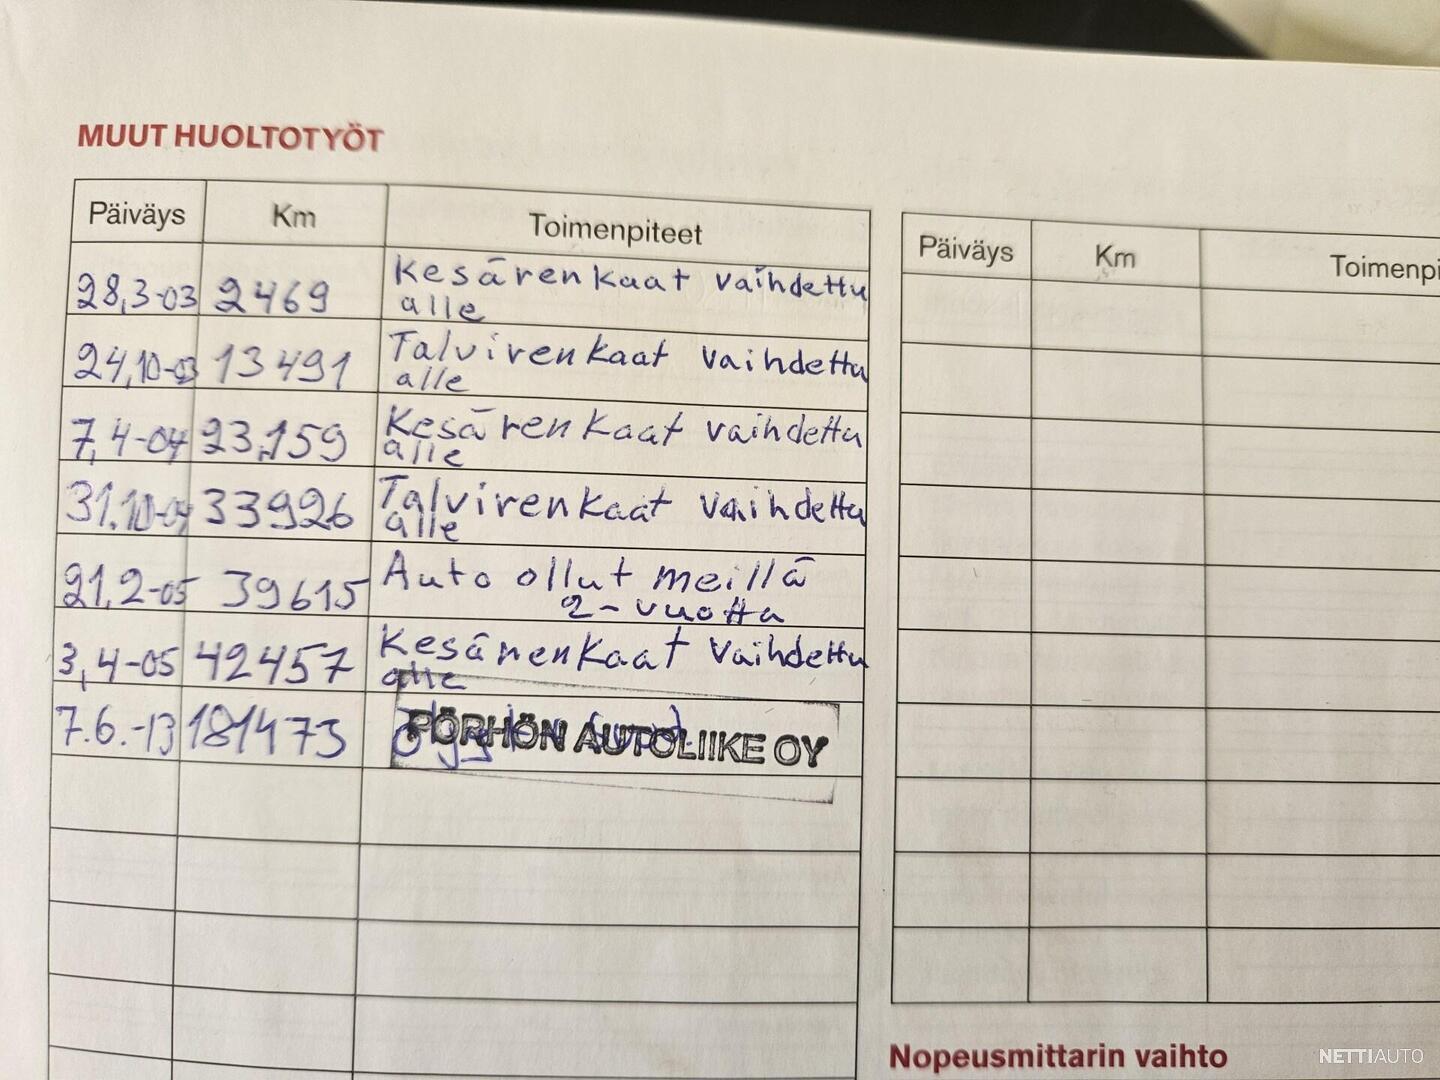 MUUT HUOLTOTYÖT
Päiväys Km Toimenpiteet
28,3-03 2469 Kesärenkaat vaihdettu
alle
24,10-03 13491 Talvirenkaat vaihdettu
alle
7,4-04 23,159 Kesärenkaat vaihdettu
alle
31,10-04 33926 Talvirenkaat vaihdettu
alle
21,2-05 39615 Auto ollut meillä
2-vuotta
3,4-05 42457 Kesärenkaat vaihdettu
alle
7.6.-13 181473
PÖRHÖN AUTOLIIKE OY
Päiväys Km Toimenpi
Nopeusmittarin vaihto
NETTIAUTO